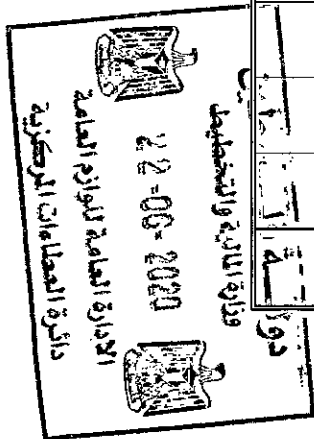 وزارة المالية والتخطيط
22-06-2020
الإدارة العامة للوازم العامة
دائرة العطاءات المركزية